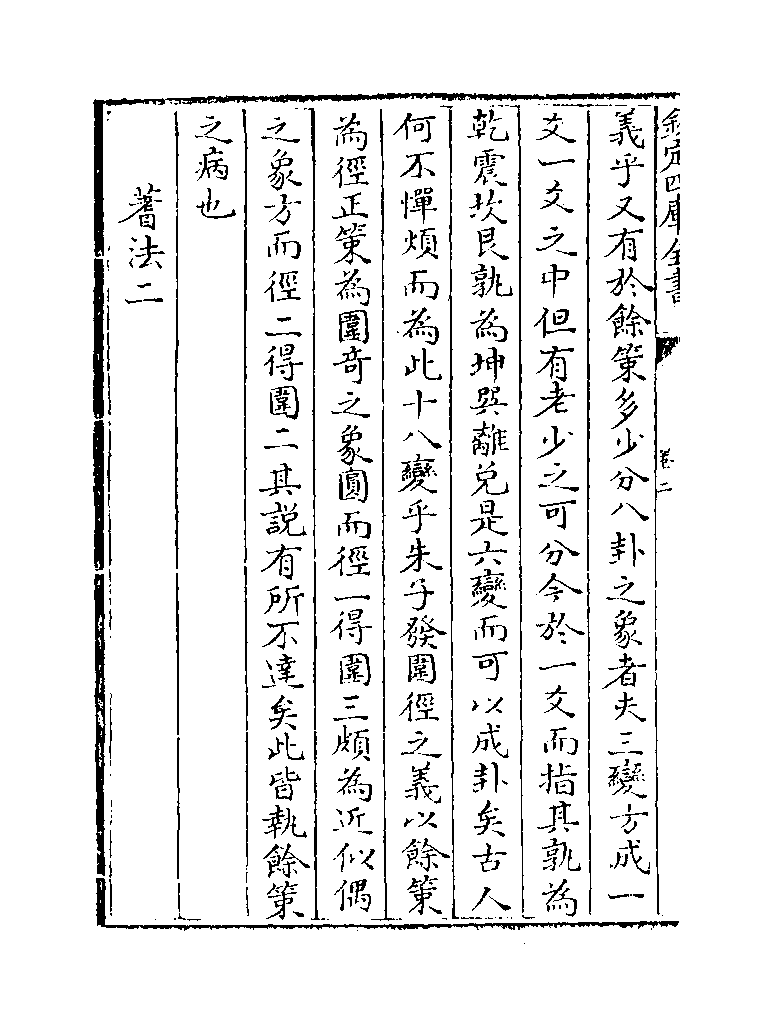 欽定四庫全書
卷二
義乎又有於餘策多少分八卦之象者夫三變方成一
爻一爻之中但有老少之可分今於一爻而指其孰為
乾震坎艮孰為坤巽離兌是六變而可以成卦矣古人
何不憚煩而為此十八變乎朱子發圍徑之義以餘策
為徑正策為圍奇之象圓而徑一得圍三頗為近似偶
之象方而徑二得圍二其說有所不達矣此皆執餘策
之病也
蓍法二